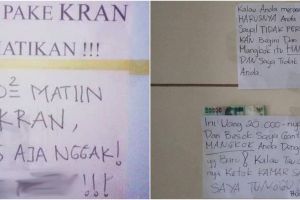 PAKE KRAN
MATIKAN !!!
MATIIN
KRAN,
AJA NGGAK!
!!!
Kalau Anda
HARUSNYA Anda
Saya TIDAK
KAN Begini Dan
Mangkok itu
DAN Saya Tidak
Anda.
Ini Uang 20.000-nya
Dan Besok Saya Ganti
MANGKOK Anda Dengan
yg Baru & Kalau
nya Ketok KAMAR
SAYA TUNGGU